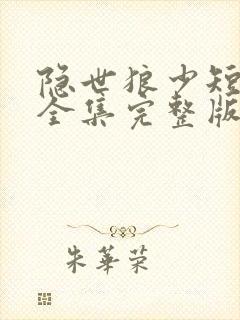 隐世狼少短
全集完整版
朱華荣